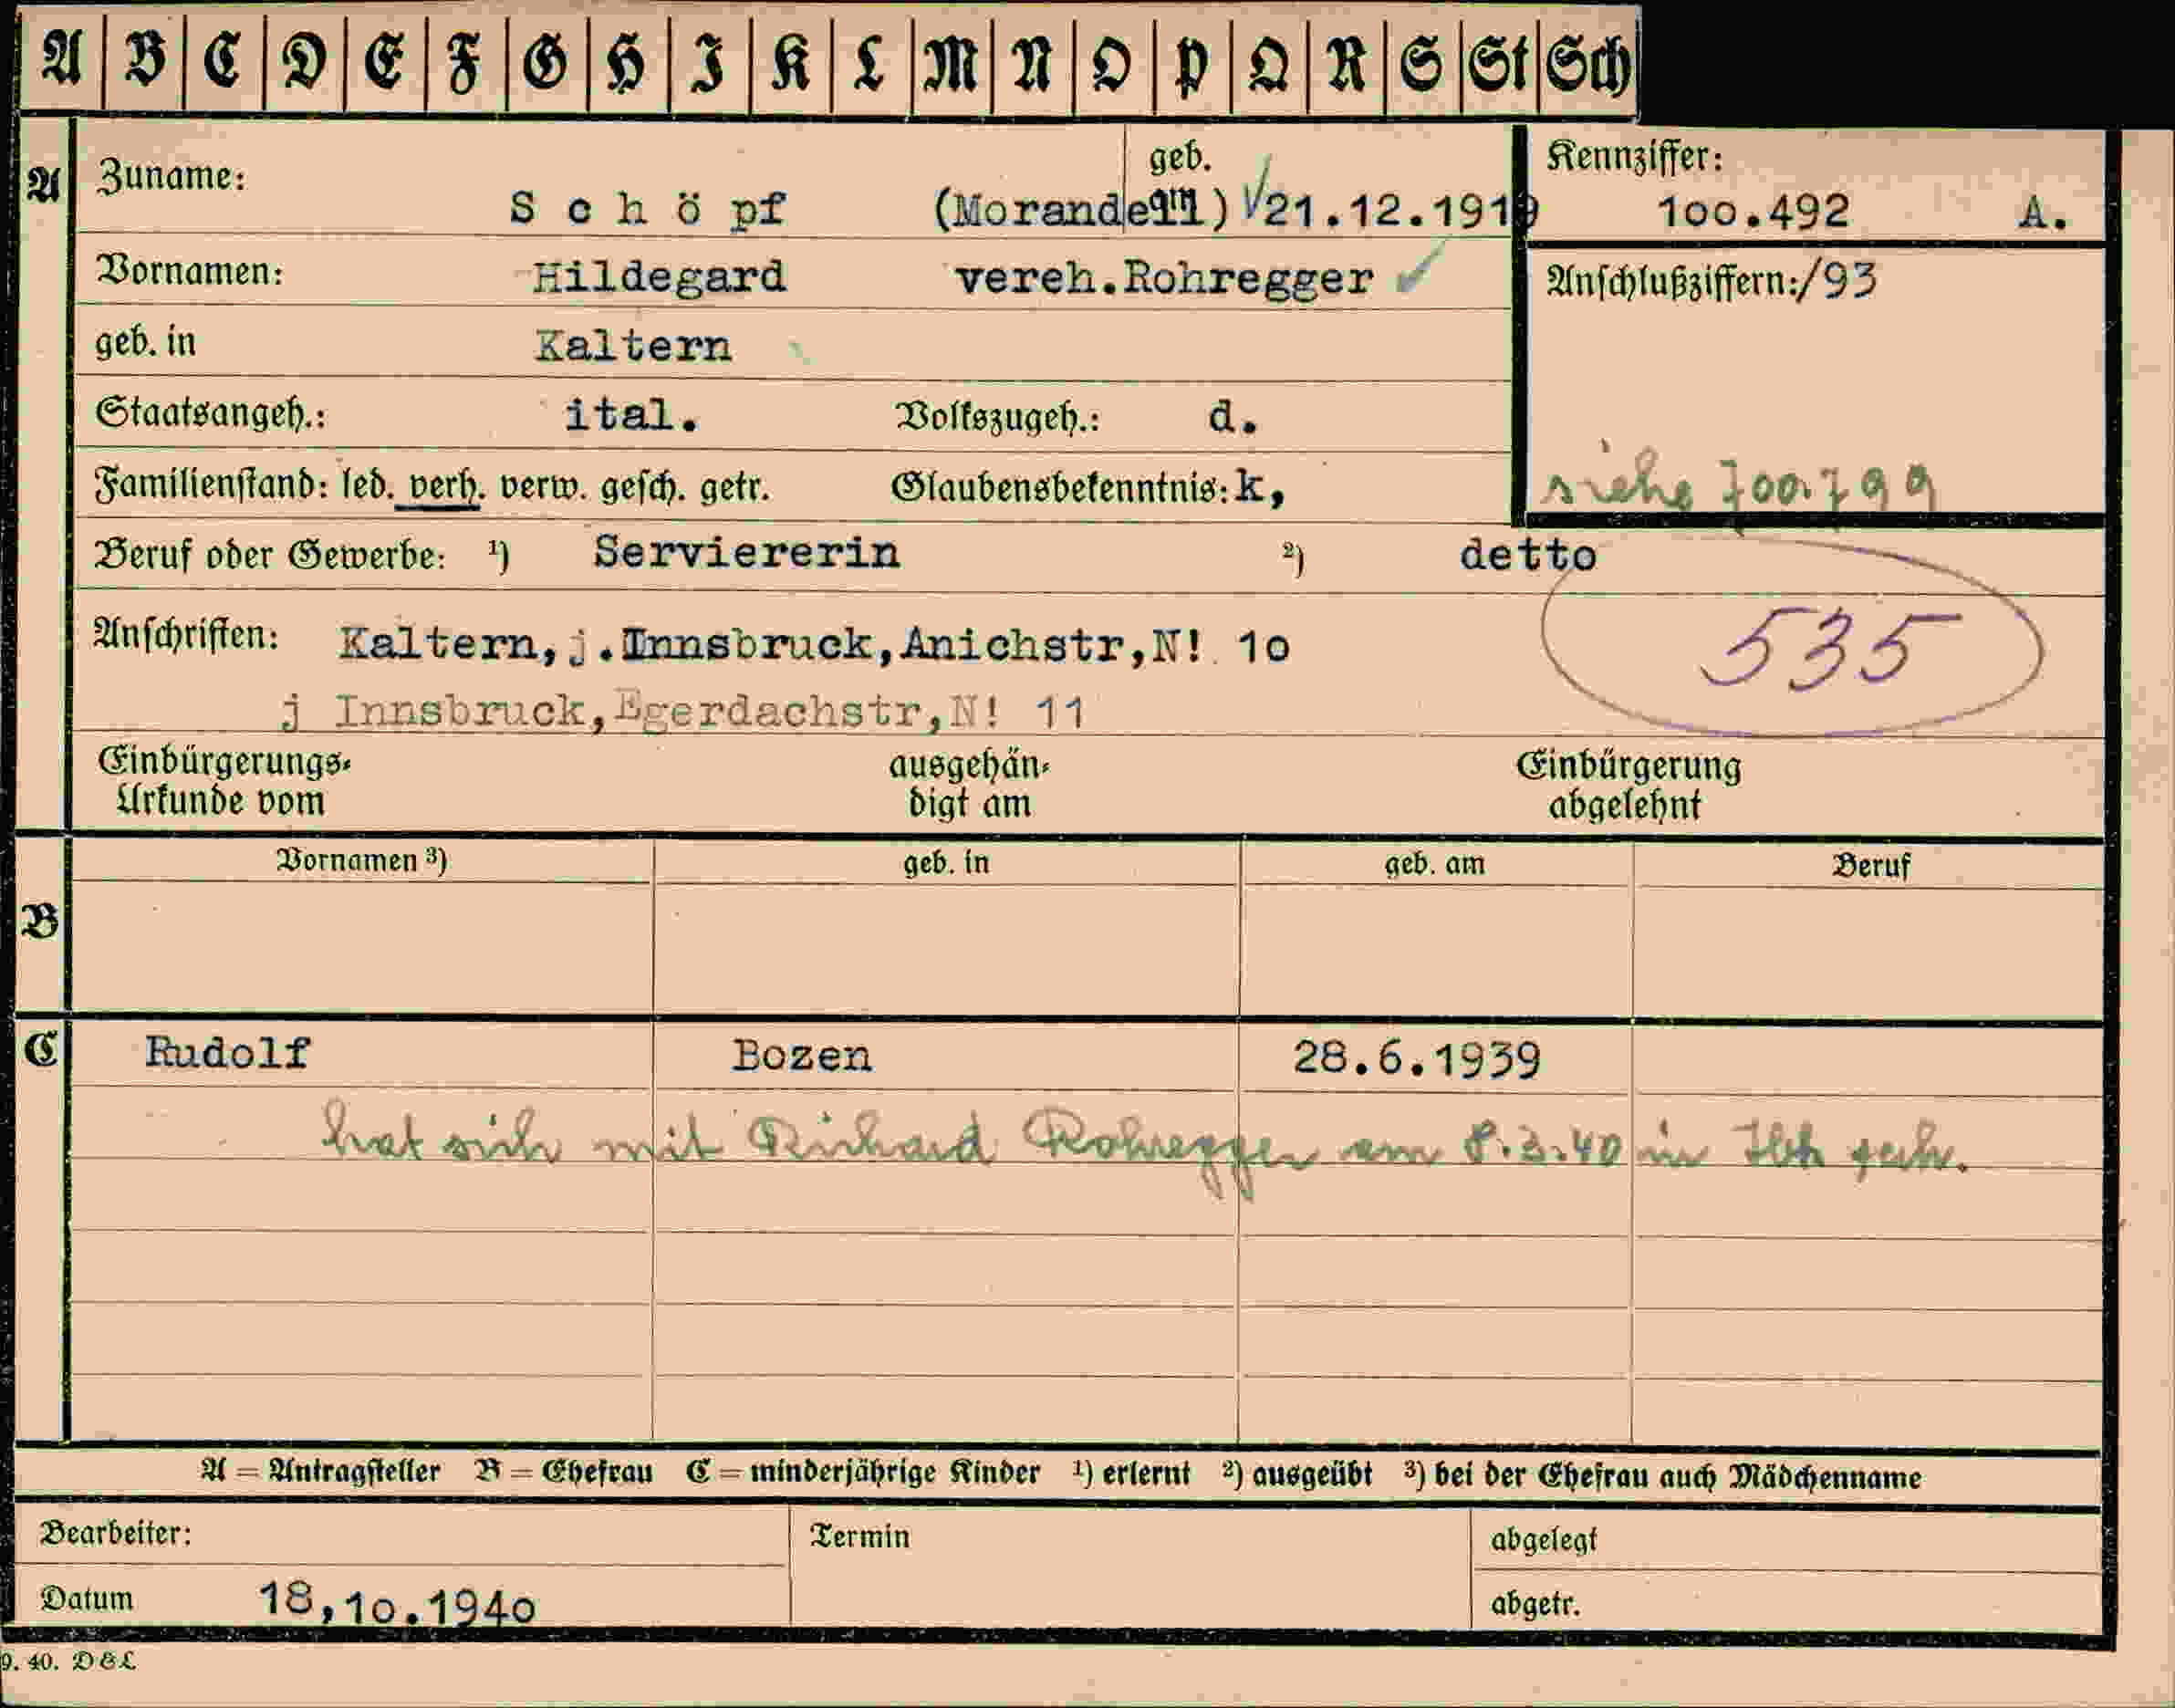 A B C D E F G H I K L M N O P Q R S St Sch
A Zuname: S c h ö pf (Morandell) geb. am 21.12.1919
Kennziffer: 100.492 A.
Vornamen: Hildegard vereh.Rohregger
Anschlußziffern:/93
geb. in Kaltern
Staatsangeh.: ital. Volkszugeh.: d.
Familienstand: led. verh. verw. gesch. getr. Glaubensbekenntnis: k,
siehe 700.799
Beruf oder Gewerbe: 1) Serviererin 2) detto
Anschriften: Kaltern,j.Innsbruck,Anichstr,N! 10
535
j Innsbruck,Egerdachstr,N! 11
Einbürgerungs-Urkunde vom ausgehän-digt am Einbürgerung abgelehnt
Vornamen 3) geb. in geb. am Beruf
B
C Rudolf Bozen 28.6.1939
hat sich mit Richard Rohregger am 8.3.40 in Ibk
A = Antragsteller B = Ehefrau C = minderjährige Kinder 1) erlernt 2) ausgeübt 3) bei der Ehefrau auch Mädchenname
Bearbeiter: Termin abgelegt
Datum 18,10.1940 abgetr.
9. 40. D & L